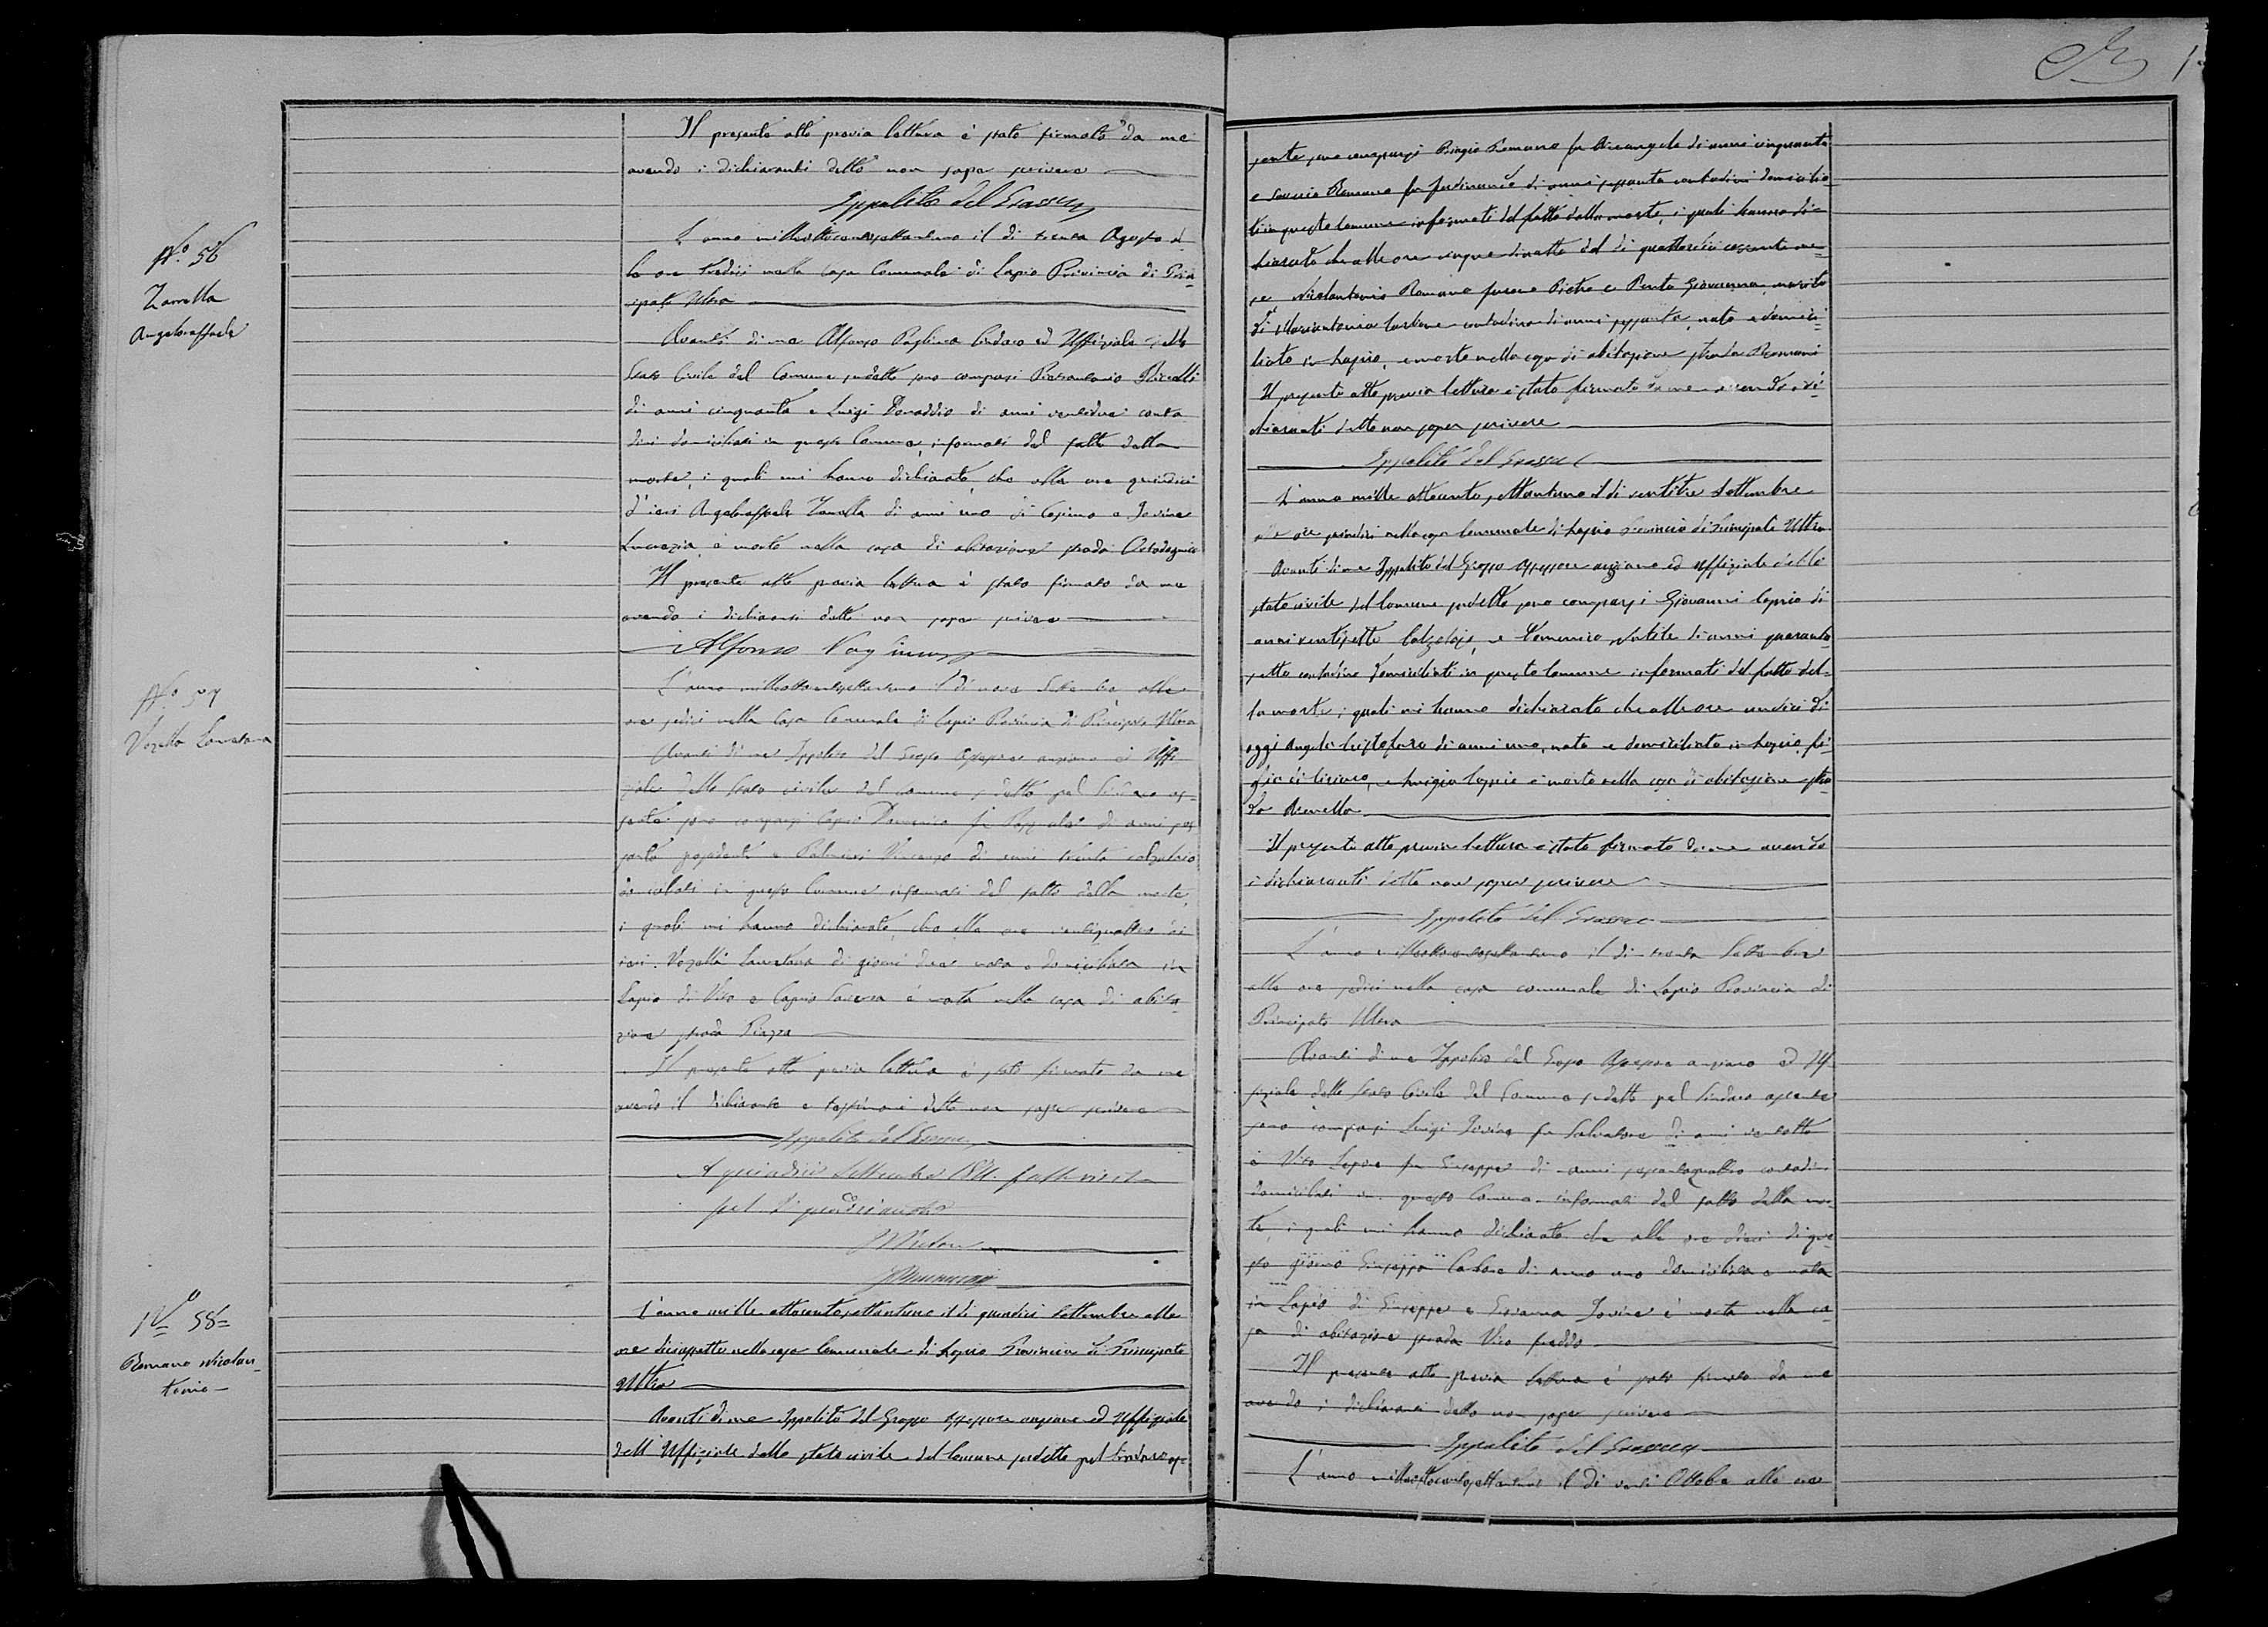 Il presente atto previa lettura è stato firmato da me
avendo i dichiaranti detto non saper scrivere
Ippolito del Grosso
N.º 56
Zarrella
Angeloraffaele
L'anno milleottocentosettantuno il di trenta Agosto al
le ore tredici nella casa Comunale di Lapio Provincia di Prin
cipato Ultra
Avanti di me Alfonso Sindaco ed Uffiziale dello
Stato Civile del Comune sudetto sono comparsi
di anni cinquanta e Luigi di anni ventidue conta
dini domiciliati in questo Comune, informati del fatto della
morte, i quali mi hanno dichiarato, che alle ore quindici
d'ieri Angeloraffaele Zarrella di anni uno di Cosimo e Iovine
Lucrezia, è morto nella casa di abitazione strada
Il presente atto previa lettura è stato firmato da me
avendo i dichiaranti detto non saper scrivere
Alfonso
N.º 57
Loretana
L'anno milleottocentosettantuno il di nove Settembre alle
ore sedici nella Casa Comunale di Lapio Provincia di Principato Ultra
Avanti di me Ippolito del Grosso Assessore anziano ed Uffi
ziale dello stato civile del comune sudetto pel Sindaco as
sente sono comparsi Caprio Domenico fu di anni ses
santa possidente e Vincenzo di anni trenta calzolaio
domiciliati in questo Comune informati del fatto della morte,
i quali mi hanno dichiarato, che alle ore ventiquattro di
ieri Loretana di giorni due nata e domiciliata in
Lapio di Vito e Caprio è morta nella casa di abita
zione strada Piazza
Il presente atto previa lettura è stato firmato da me
avendo il dichiarante e testimoni detto non saper scrivere
Ippolito del Grosso
A quindici Settembre 1871
pel
Nº 58=
Romano Nicolan-
tonio-
L'anno mille ottocento settantuno il di quindici Settembre alle
ore diciassette nella casa Comunale di Lapio Provincia di Principato
Ultra
Avanti di me Ippolito del Grosso Assessore anziano ed Uffiziale
dell'Uffiziale dello stato civile del Comune sudetto pel Sindaco as-
sente sono comparsi Biagio Romano fu Arcangelo di anni cinquanta
e Romano fu Ferdinando di anni sessanta contadini domicilia-
ti in questo Comune informati del fatto della morte, i quali hanno di-
chiarato che alle ore cinque di notte del di quattordici corrente me-
se, Nicolantonio Romano furono Pietro e Penta Giovanna, marito
di Mariantonia Carbone contadino di anni sessanta, nato e domici-
liato in Lapio, è morto nella casa di abitazione strada Romani
Il presente atto previa lettura è stato firmato da me avendo i di-
chiaranti detto non saper scrivere
Ippolito del Grosso
L'anno mille ottocento settantuno il di ventitre Settembre
alle ore quindici nella casa Comunale di Lapio Provincia di Principato Ultra
Avanti di me Ippolito del Grosso Assessore anziano ed Uffiziale dello
stato civile del Comune sudetto sono comparsi Giovanni Caprio di
anni ventisette Calzolajo, e Domenico di anni quaranta
sette contadino domiciliati in questo Comune informati del fatto del-
la morte, i quali mi hanno dichiarato che alle ore undici di
oggi Angelo di anni uno, nato e domiciliato in Lapio, fi-
glio di Ciriaco, e Luigia Caprio è morto nella casa di abitazione stra-
da
Il presente atto previa lettura è stato firmato da me avendo
i dichiaranti detto non saper scrivere
Ippolito del Grosso
L'anno milleottocentosettantuno il di trenta Settembre
alle ore sedici nella casa comunale di Lapio Provincia di
Principato Ultra
Avanti di me Ippolito del Grosso Assessore anziano ed Uf
fiziale dello Stato Civile del Comune sudetto pel Sindaco assente
sono comparsi Luigi Iovine fu Salvatore di anni
e Vito fu Giuseppe di anni sessantaquattro contadini
domiciliati in questo Comune informati del fatto della mor
te, i quali mi hanno dichiarato che alle ore dieci di que
sto giorno Giuseppa Carbone di anno uno domiciliata e nata
in Lapio di Giuseppe e Iovine è morta nella ca
sa di abitazione strada Vico freddo
Il presente atto previa lettura è stato firmato da me
avendo i dichiaranti detto non saper scrivere
Ippolito del Grosso
L'anno milleottocentosettantuno il di venti Ottobre alle ore